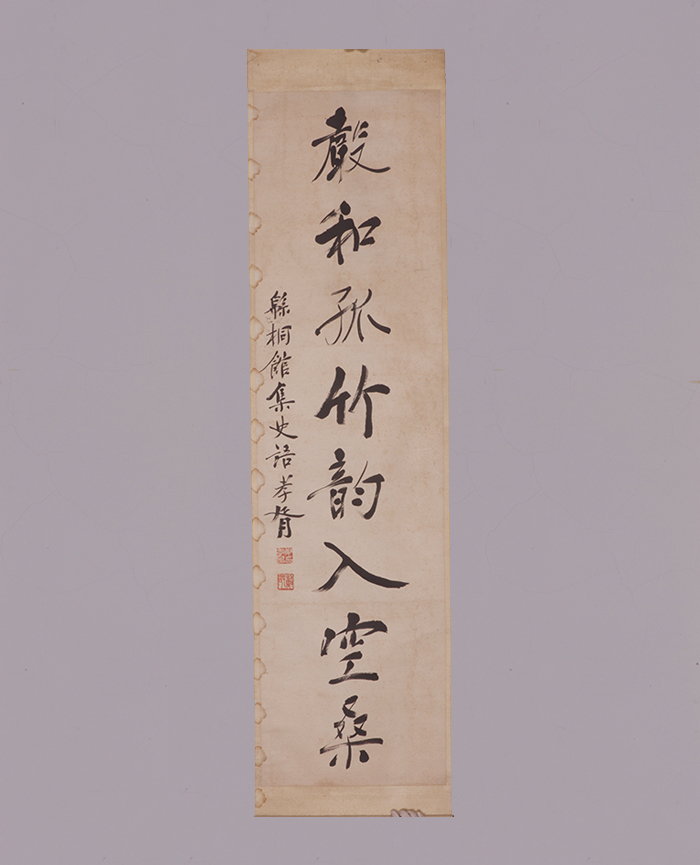 聲和孤竹韵入空桑
緜桐館集史語孝胥